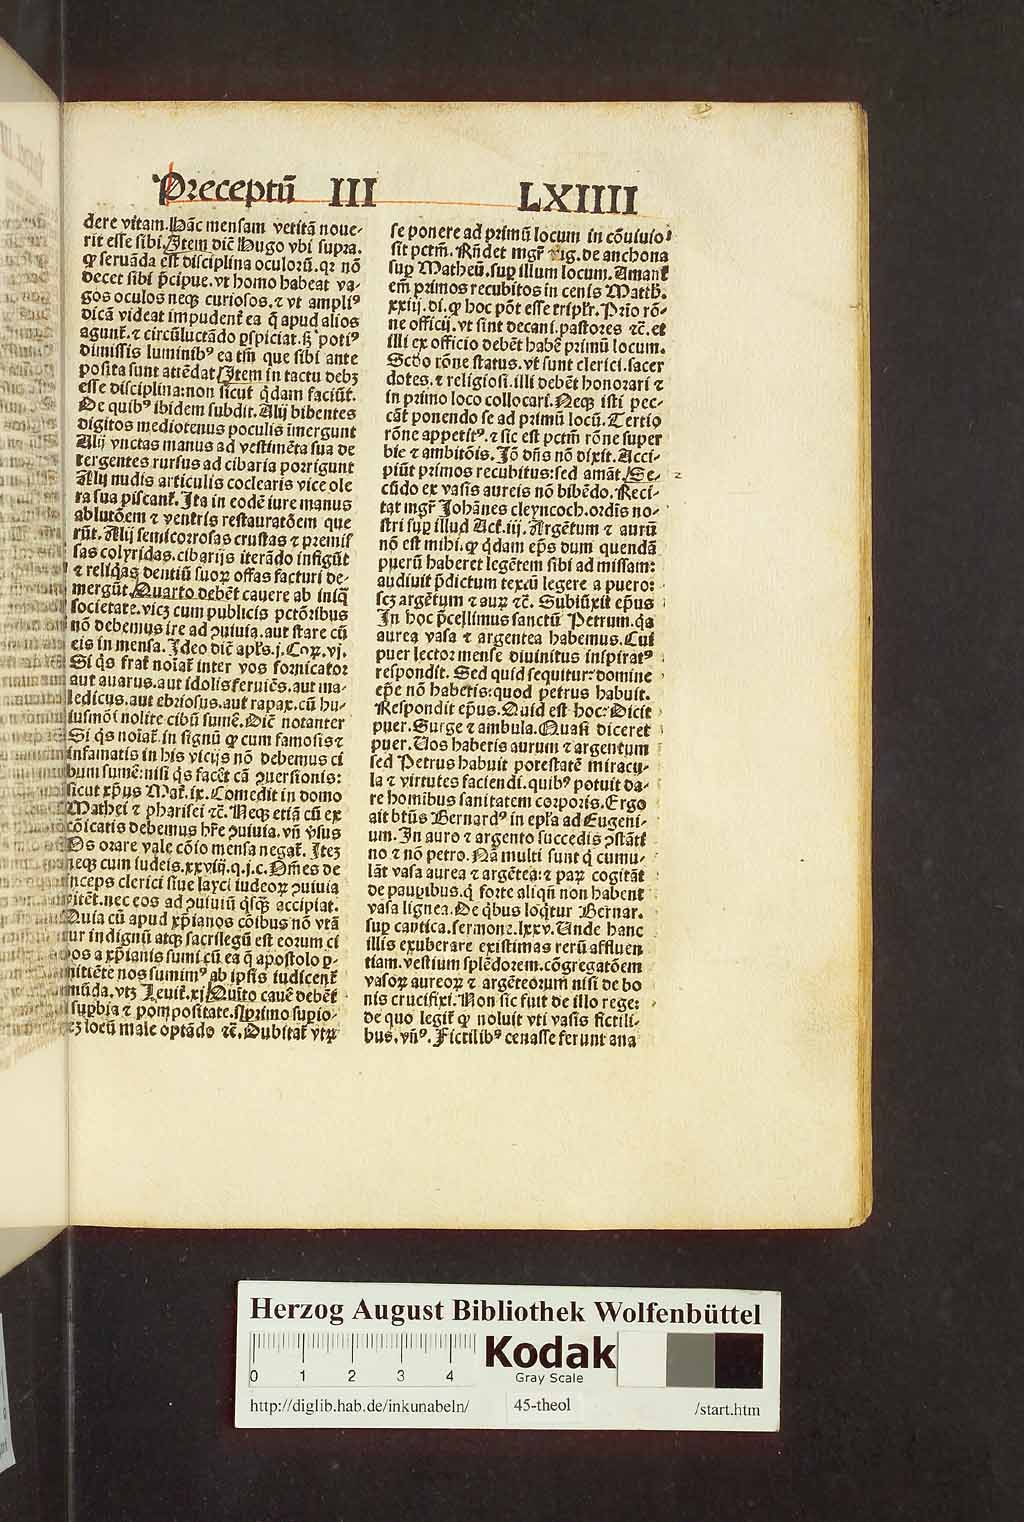 Preceptū III LXIIII
dere vitam. Hāc mensam vetitā noue-
rit esse sibi. Item dic̄ Hugo vbi supra.
ꝙ seruāda est disciplina oculorū. qꝛ nō
decet sibi p̄cipue. vt homo habeat va-
gos oculos neqꝫ curiosos. ⁊ vt ampliꝰ
dicā videat impudent̄ ea q̄ apud alios
agunt̄. ⁊ circūluctādo ꝑspiciat. sꝫ potiꝰ
dimissis luminibꝰ ea tm̄ que sibi ante
posita sunt attēdat Item in tactu debꝫ
esse disciplina: non sicut q̄dam faciūt.
De quibꝰ ibidem subdit. Alij bibentes
digitos mediotenus poculis īmergunt
Alij vnctas manus ad vestimēta sua de
tergentes rursus ad cibaria porrigunt
Alij nudis articulis coclearis vice ole
ra sua piscant̄. Ita in eodē iure manus
ablutōem ⁊ ventris restauratōem que
rūt. Alij semicorrosas crustas ⁊ premis
sas colyridas. cibarijs iterādo infigūt
⁊ reliq̄as dentiū suoꝝ offas facturi de-
mergūt. Quarto debēt cauere ab iniq̄
societate. vicꝫ cum publicis pctōribus
nō debemus ire ad ꝯuiuia. aut stare cū
eis in mensa. Ideo dic̄ apl̄s. j. Coꝝ. vj.
Si q̄s frat̄ noīat̄ inter vos fornicator
aut auarus. aut idolis seruiēs. aut ma-
ledicus. aut ebriosus. aut rapax. cū hu-
iusmōi nolite cibū sumē. Dic̄ notanter
Si q̄s noīat̄. in signū ꝙ cum famosis ⁊
infamatis in his vicijs nō debemus ci
bum sumē: nisi q̄s facēt cā ꝯuersionis:
sicut xp̄us Mat̄. ix. Comedit in domo
Mathei ⁊ pharisei ⁊c̄. Neqꝫ etiā cū ex
cōicatis debemus hr̄e ꝯuiuia. vn̄ v̄sus
Os orare vale cōio mensa negat̄. Iteꝫ
neqꝫ cum iudeis. xxviij. q. j. c. Om̄es de
inceps clerici siue layci iudeoꝝ ꝯuiuia
vitēt. nec eos ad ꝯuiuiū q̄sqꝫ accipiat.
Quia cū apud xp̄ianos cōibus nō vtā
tur indignū atqꝫ sacrilegū est eorum ci
bos a xp̄ianis sumi cū ea q̄ apostolo ꝑ-
mittēte nos sumimꝰ ab ipsis iudicent̄
immūda. vtꝫ Leuit̄. xj Quīto cauē debēt
suꝑbia ⁊ pompositate. s. primo supio-
reꝫ locū male optādo ⁊c̄. Dubitat̄ vtꝝ
se ponere ad primū locum in cōuiuio
sit pctm̄. Rn̄det mgr̄ Aug. de anchona
suꝑ Matheū. suꝑ illum locum. Amant̄
em̄ primos recubitos in cenis Matth.
xxiij. di. ꝙ hoc pōt esse tripl̄r. Prīo rō-
ne officij. vt sint decani. pastores ⁊c̄. et
illi ex officio debēt habē primū locum.
Scdo rōne status. vt sunt clerici. sacer
dotes. ⁊ religiosi. illi debēt honorari ⁊
in primo loco collocari. Neqꝫ isti pec-
cāt ponendo se ad primū locū. Tertio
rōne appetitꝰ. ⁊ sic est pctm̄ rōne super
bie ⁊ ambitōis. Iō dn̄s nō dixit. Acci-
piūt primos recubitus: sed amāt. Se-
cūdo ex vasis aureis nō bibēdo. Reci-
tat mgr̄ Johānes cleyncoch. ordīs no-
stri suꝑ illud Act̄. iij. Argētum ⁊ aurū
nō est mihi. ꝙ q̄dam ep̄s dum quendā
puerū haberet legētem sibi ad missam:
audiuit p̄dictum textū legere a puero:
scꝫ argētum ⁊ auꝝ ⁊c̄. Subiūxit ep̄us
In hoc p̄cellimus sanctū Petrum. q̄a
aurea vasa ⁊ argentea habemus. Cui
puer lector mense diuinitus inspiratꝰ
respondit. Sed quid sequitur: domine
ep̄e nō habetis: quod petrus habuit.
Respondit ep̄us. Quid est hoc: Dicit
puer. Surge ⁊ ambula. Quasi diceret
puer. Vos habetis aurum ⁊ argentum
sed Petrus habuit potestatē miracu-
la ⁊ virtutes faciendi. quibꝰ potuit da-
re homībus sanitatem corporis. Ergo
ait btūs Bernardꝰ in epl̄a ad Eugeni-
um. In auro ⁊ argento succedis ꝯstātī
no ⁊ nō petro. Nā multi sunt q̄ cumu-
lāt vasa aurea ⁊ argētea: ⁊ paꝝ cogitāt
de pauꝑibus. q̄ forte aliqn̄ non habent
vasa lignea. De q̄bus loq̄tur Bernar.
suꝑ cantica. sermone. lxxv. Unde hanc
illis exuberare existimas rerū affluen
tiam. vestium splēdorem. cōgregatōem
vasoꝝ aureoꝝ ⁊ argēteorum nisi de bo
nis crucifixi. Non sic fuit de illo rege:
de quo legit̄ ꝙ noluit vti vasis fictili-
bus. vn̄ꝰ. Fictilibꝰ cenasse ferunt aga
Herzog August Bibliothek Wolfenbüttel
0 1 2 3 4
Kodak
Gray Scale
http://diglib.hab.de/inkunabeln/ 45-theol /start.htm